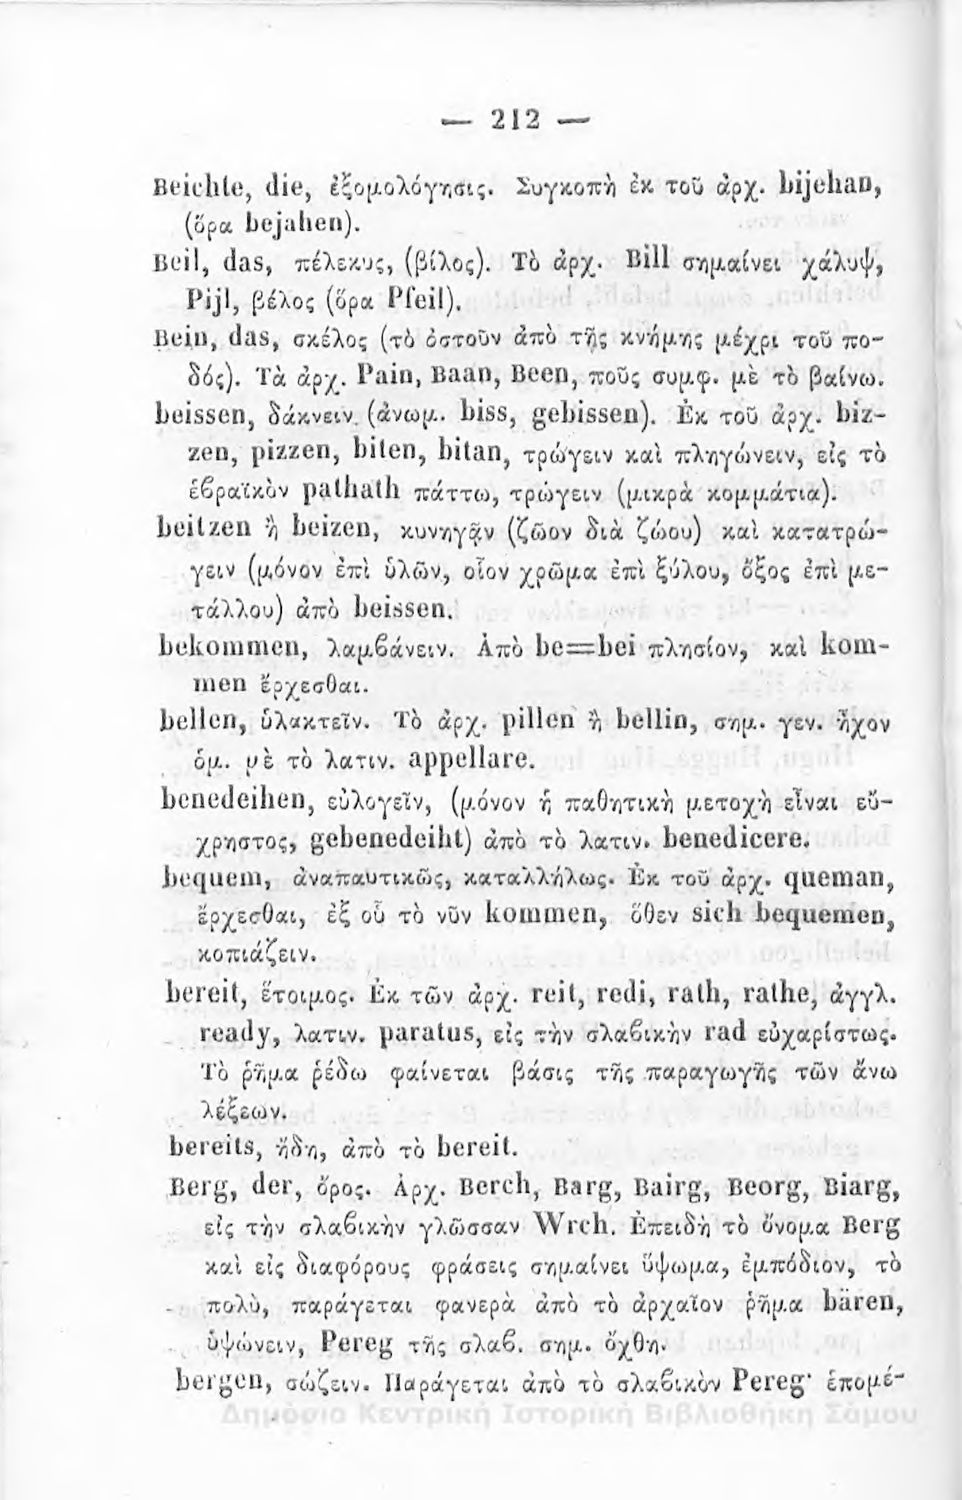 — 212 —
Beichte, die, ἐξομολόγησις. Συγκοπὴ ἐκ τοῦ ἀρχ. bijehan,
(ὅρα bejahen).
Beil, das, πέλεκυς, (βίλος). Τὸ ἀρχ. Bill σημαίνει χάλυψ,
Pijl, βέλος (ὅρα Pfeil).
Bein, das, σκέλος (τὸ ὀστοῦν ἀπὸ τῆς κνήμης μέχρι τοῦ πο-
δός). Τὰ ἀρχ. Pain, Baan, Been, ποῦς συμφ. μὲ τὸ βαίνω.
beissen, δάκνειν (ἀνωμ. biss, gebissen). Ἐκ τοῦ ἀρχ. biz-
zen, pizzen, biten, bitan, τρώγειν καὶ πληγώνειν, εἰς τὸ
ἑβραϊκὸν pathath πάττω, τρώγειν (μικρὰ κομμάτια).
beitzen ἢ beizen, κυνηγᾷν (ζῶον διὰ ζώου) καὶ κατατρώ-
γειν (μόνον ἐπὶ ὑλῶν, οἷον χρῶμα ἐπὶ ξύλου, ὄξος ἐπὶ με-
τάλλου) ἀπὸ beissen.
bekommen, λαμβάνειν. Ἀπὸ be=bei πλησίον, καὶ kom-
men ἔρχεσθαι.
bellen, ὑλακτεῖν. Τὸ ἀρχ. pillen ἢ bellin, σημ. γεν. ἦχον
ὁμ. μὲ τὸ λατιν. appellare.
benedeihen, εὐλογεῖν, (μόνον ἡ παθητικὴ μετοχὴ εἶναι εὔ-
χρηστος, gebenedeiht) ἀπὸ τὸ λατιν. benedicere.
bequem, ἀναπαυτικῶς, καταλλήλως. Ἐκ τοῦ ἀρχ. queman,
ἔρχεσθαι, ἐξ οὗ τὸ νῦν kommen, ὅθεν sich bequemen,
κοπιάζειν.
bereit, ἕτοιμος. Ἐκ τῶν ἀρχ. reit, redi, rath, rathe, ἀγγλ.
ready, λατιν. paratus, εἰς τὴν σλαβικὴν rad εὐχαρίστως.
Τὸ ῥῆμα ῥέδω φαίνεται βάσις τῆς παραγωγῆς τῶν ἄνω
λέξεων.
bereits, ἤδη, ἀπὸ τὸ bereit.
Berg, der, ὄρος. Ἀρχ. Berch, Barg, Bairg, Beorg, Biarg,
εἰς τὴν σλαβικὴν γλῶσσαν Wrch. Ἐπειδὴ τὸ ὄνομα Berg
καὶ εἰς διαφόρους φράσεις σημαίνει ὕψωμα, ἐμπόδιον, τὸ
πολὺ, παράγεται φανερὰ ἀπὸ τὸ ἀρχαῖον ῥῆμα bären,
ὑψώνειν, Pereg τῆς σλαβ. σημ. ὄχθη.
bergen, σώζειν. Παράγεται ἀπὸ τὸ σλαβικὸν Pereg· ἑπομέ-
Δημόσια Κεντρική Ιστορική Βιβλιοθήκη Σάμου